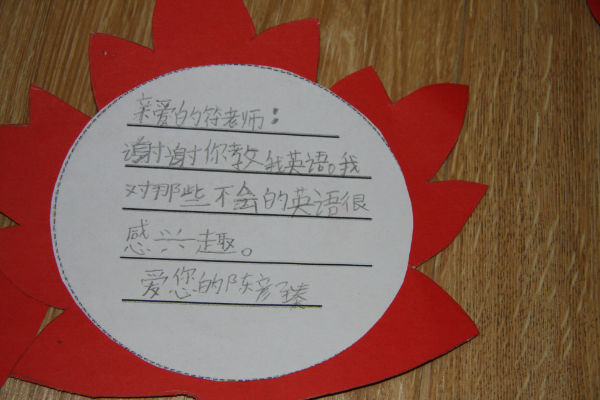 亲爱的符老师：
谢谢你教我英语。我
对那些不会的英语很
感兴趣。
爱您的陈彦臻